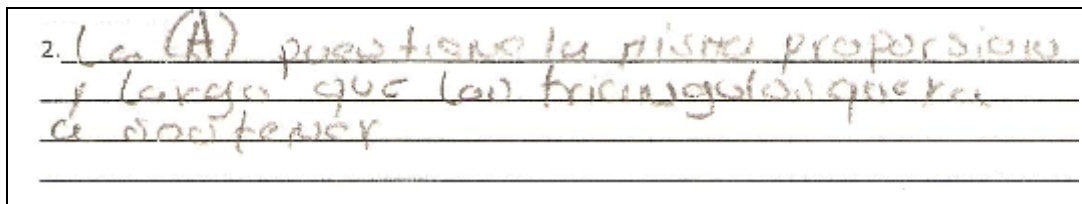 2. La (A) pues tiene la misma proporsion
y largo que los triangulos que va
a sostener